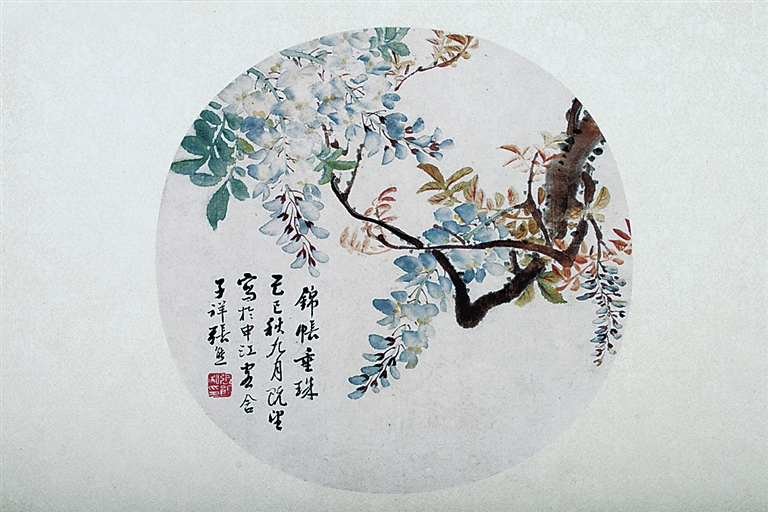 錦帳垂珠
己巳秋九月既望
寫於申江客舍
子祥張熊